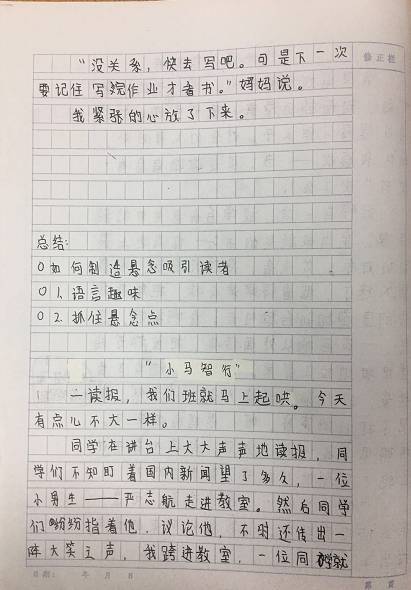 修正栏
“没关系，快去写吧。可是下一次
要记住写完作业才看书。”妈妈说。
我紧张的心放了下来。
总结:
○如何制造悬念吸引读者
○1.语言趣味
○2.抓住悬念点
“小马智行”
一读报，我们班就马上起哄。今天
有点儿不大一样。
同学在讲台上大大声声地读报，同
学们不知盯着国内新闻望了多久，一位
小男生——严志航走进教室。然后同学
们纷纷指着他，议论他，不时还传出一
阵大笑之声，我跨进教室，一位同学就
日期： 年 月 日
第 页